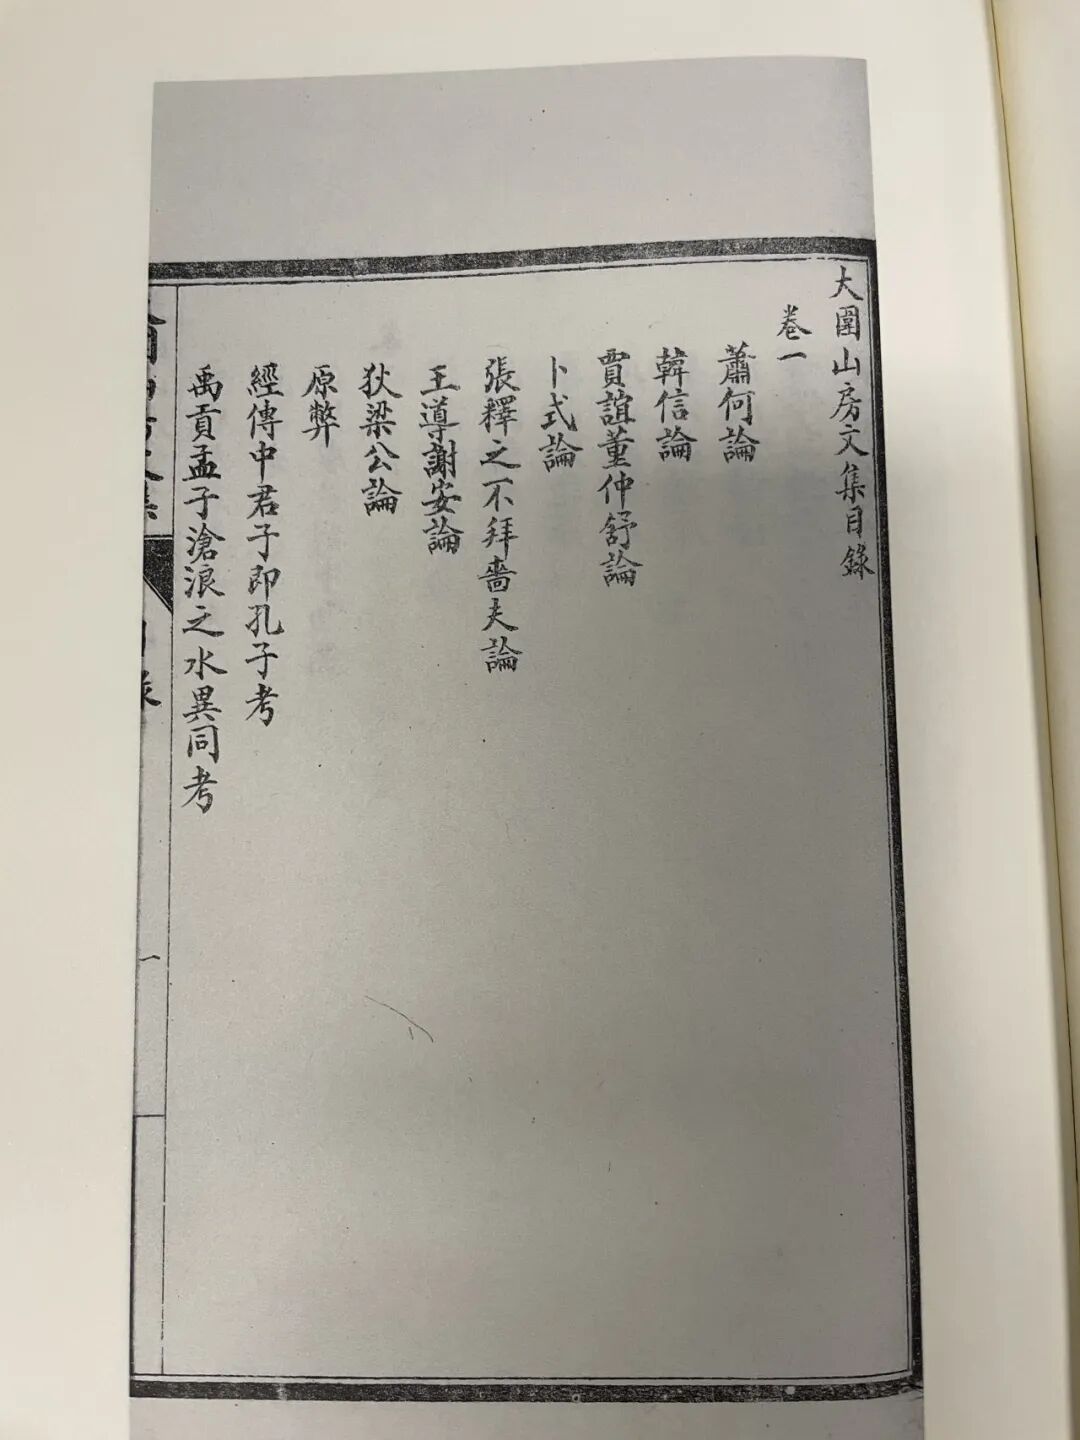 大圍山房文集目錄
卷一
蕭何論
韓信論
賈誼董仲舒論
卜式論
張釋之不拜嗇夫論
王導謝安論
狄梁公論
原弊
經傳中君子即孔子考
禹貢孟子滄浪之水異同考
一